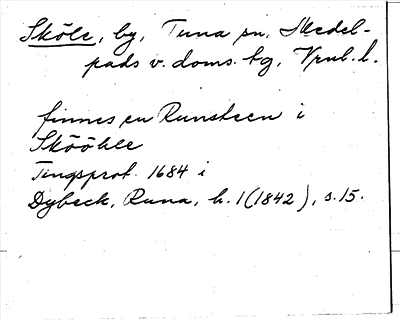 Sköle, by, Tuna sn, Medel-
pads v. doms. bg, Vnrl. l.
finnes en Runsteen i
Skööhle
Tingsprot. 1684 i
Dybeck, Runa, h. 1 (1842), s. 15.